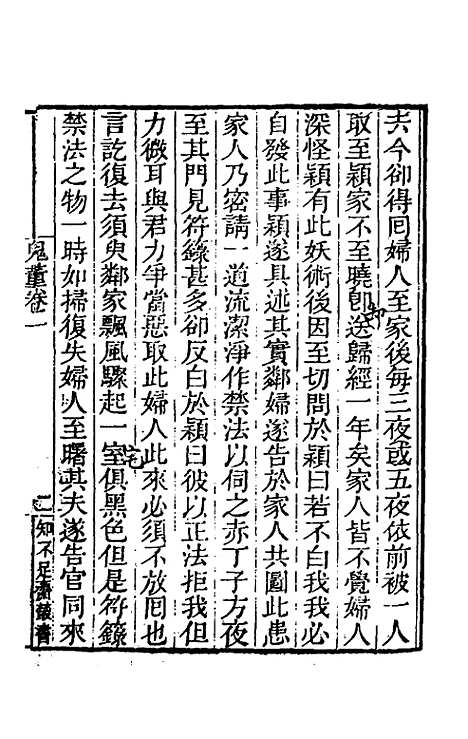 去今卻得囘婦人至家後每三夜或五夜依前被一人
取至穎家不至曉卽送歸經一年矣家人皆不覺婦人
深怪穎有此妖術後因至切問於穎曰若不白我我必
自發此事穎遂具述其實鄰婦遂告於家人共圖此患
家人乃密請一道流潔淨作禁法以伺之赤丁子方夜
至其門見符籙甚多卻反白於穎曰彼以正法拒我但
力微耳與君力爭當惡取此婦人此來必須不放囘也
言訖復去須臾鄰家飄風驟起一室俱黑色但是符籙
禁法之物一時如掃復失婦人至曙其夫遂告官同來
鬼董卷一
二
知不足齋叢書
却
宅